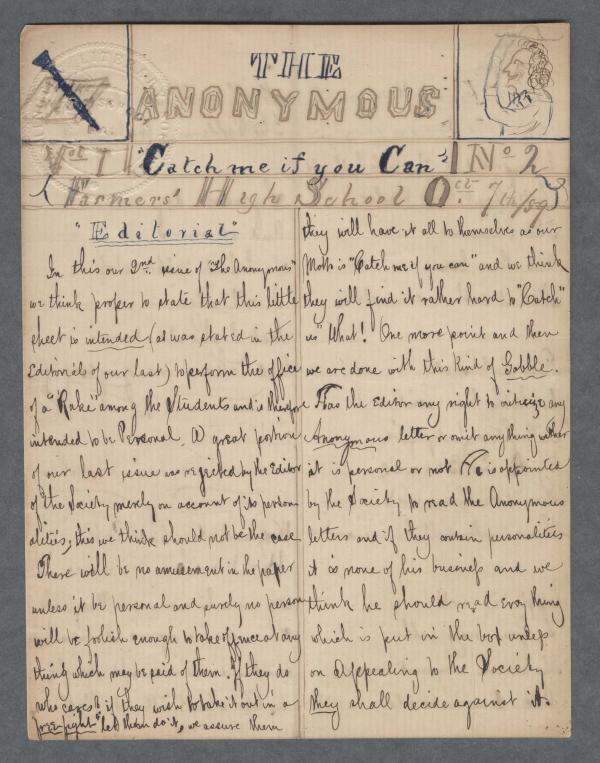 THE
ANONYMOUS
Vol 1 "Catch me if you Can" No 2
Farmers' High School Oct. 7th/59
"Editorial"
In this our 2nd. issue of "The Anonymous"
we think proper to state that this little
sheet is intended (as was stated in the
Editorial of our last) to perform the office
of a "Rake" among the Students and is therefore
intended to be Personal. A great portion
of our last issue was rejected by the Editor
of the Society merely on account of its person-
alities, this we think should not be the case
There will be no amusement in the paper
unless it be personal and surely no person
will be foolish enough to take offence at any
thing which may be said of them. If they do
who cares? if they wish to take it out in a
"free fight" let them do it, we assure them
they will have it all to themselves as our
Motto is "Catch me if you can" and we think
they will find it rather hard to "Catch"
us" What! One more point and then
we are done with this kind of Gabble.
Has the Editor any right to criticize any
Anonymous letter or omit anything whether
it is personal or not He is appointed
by the Society to read the Anonymous
letters and if they contain personalities
it is none of his business and we
think he should read every thing
which is put in the box unless
on appealing to the Society
they shall decide against it.